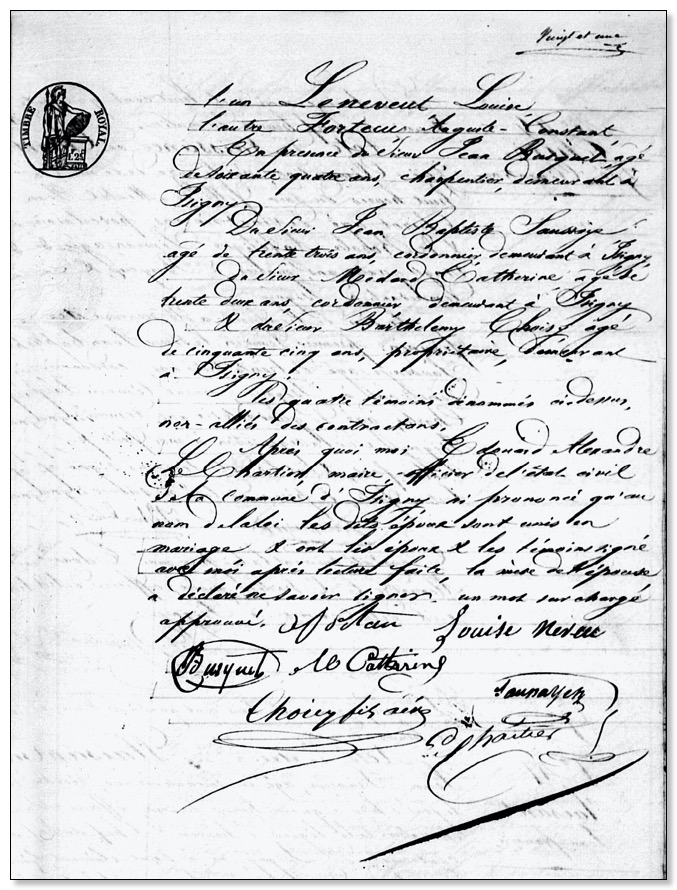 Vingt et une
TIMBRE ROYAL
1.25
l'un Leneveut Louise
l'autre Forteau Auguste-Constant
En présence du sieur Jean Busquet, agé
de soixante quatre ans, charpentier, demeurant à
Isigny.
Du sieur Jean Baptiste
agé de trente trois ans, cordonnier, demeurant à Isigny
du sieur Médard Catherine agé de
trente deux ans, cordonnier demeurant à Isigny
& du sieur Barthelemy Choisy agé
de cinquante cinq ans, propriétaire, demeurant
à Isigny.
les quatre témoins dénommés ci-dessus,
non-alliés des contractans.
Après quoi moi Edouard Alexandre
Le Chartier, maire, officier de l'état civil
de la commune d'Isigny ai prononcé qu'au
nom de la loi les dits époux sont unis en
mariage & ont les époux & les témoins signé
avec moi après lecture faite, la mère de l'épouse
a déclaré ne savoir signer. un mot surchargé
approuvé.
Louise
Busquet M Catherine
Choisy fils ainé
Chartier